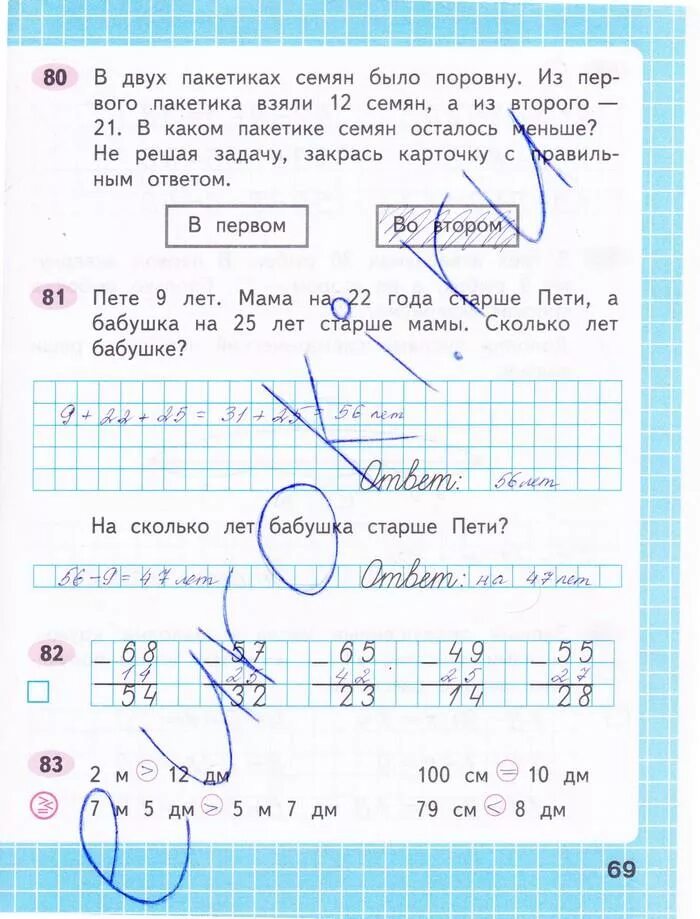 80 В двух пакетиках семян было поровну. Из пер-
вого пакетика взяли 12 семян, а из второго —
21. В каком пакетике семян осталось меньше?
Не решая задачу, закрась карточку с правиль-
ным ответом.
В первом Во втором
81 Пете 9 лет. Мама на 22 года старше Пети, а
бабушка на 25 лет старше мамы. Сколько лет
бабушке?
9 + 22 + 25 = 31 + 25 = 56 лет
Ответ: 56 лет
На сколько лет бабушка старше Пети?
56 - 9 = 47 лет Ответ: на 47 лет
82 - 68 - 57 - 65 - 49 - 55
14 25 42 25 27
54 32 23 14 28
83 2 м > 12 дм 100 см = 10 дм
7 м 5 дм > 5 м 7 дм 79 см < 8 дм
69
euroKi.ru